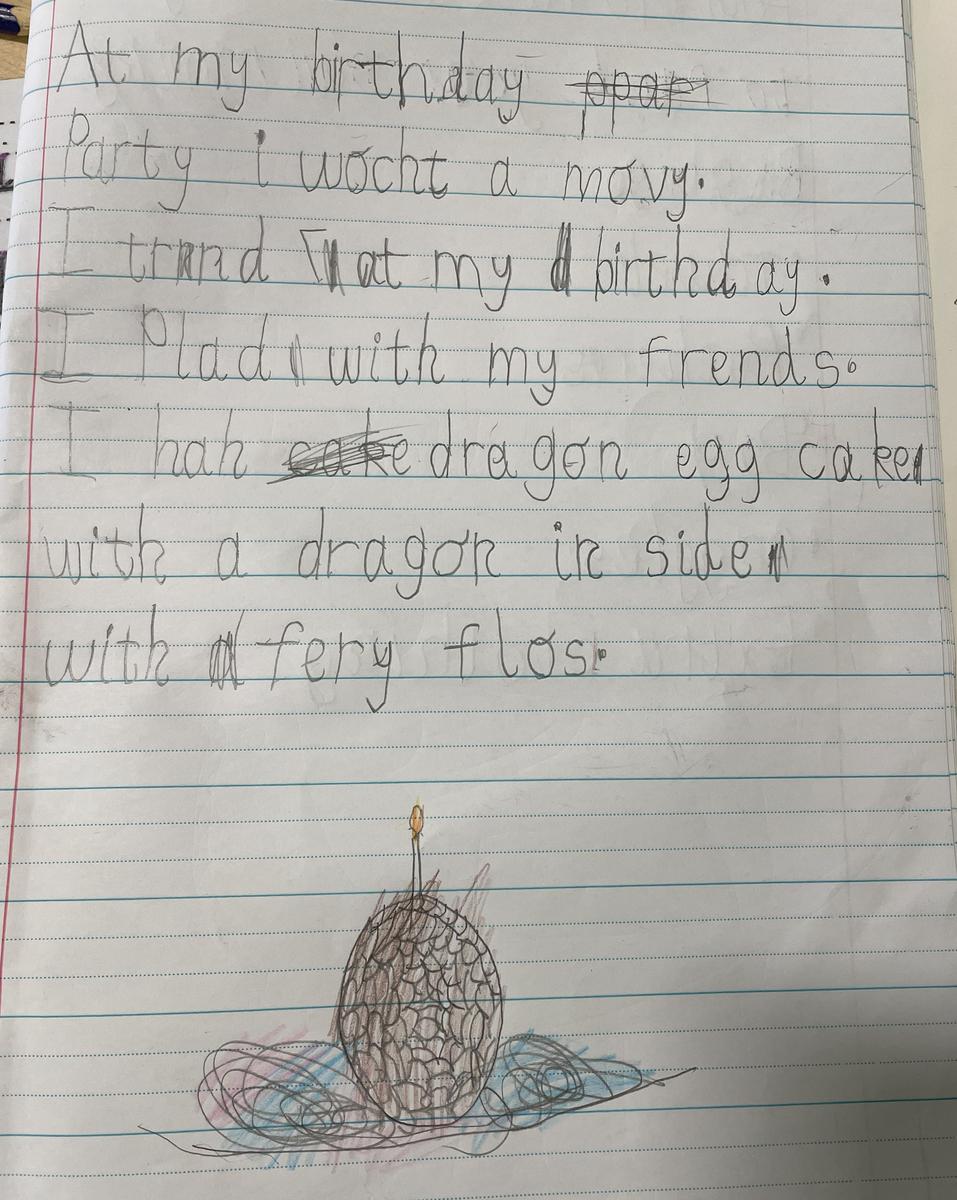 At my birthday ppar
Party i wocht a movy.
I trnd at my birthday.
I Plad with my frends.
I hah cake dragon egg cake
with a dragon in side
with fery flos.